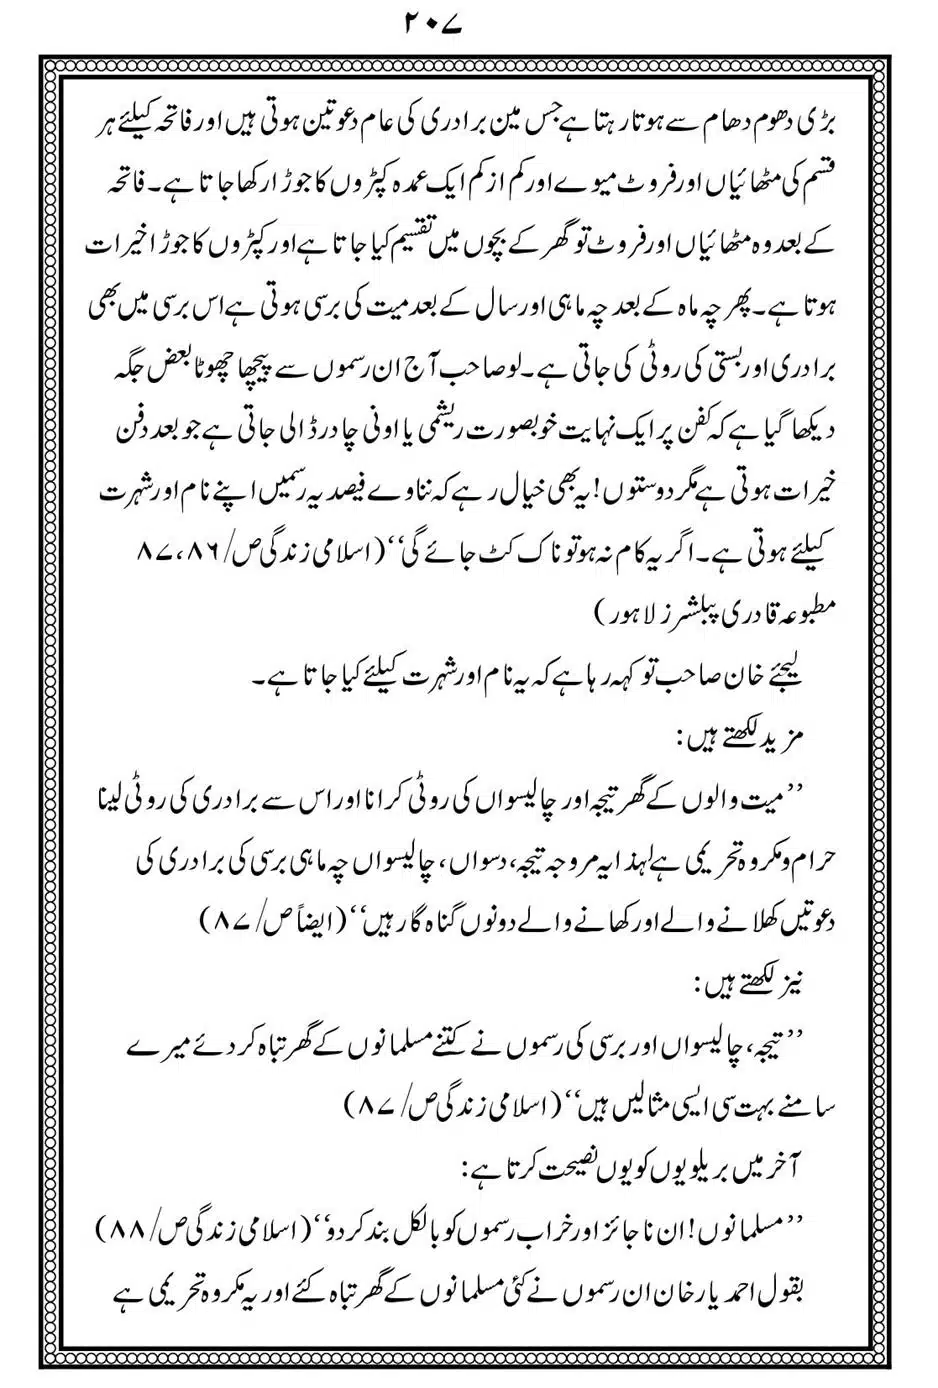 ۲۰۷
بڑی دھوم دھام سے ہوتا رہتا ہے جس مین برادری کی عام دعوتین ہوتی ہیں اور فاتحہ کیلئے ہر
قسم کی مٹھائیاں اور فروٹ میوے اور کم از کم ایک عمدہ کپڑوں کا جوڑا رکھا جاتا ہے۔ فاتحہ
کے بعد وہ مٹھائیاں اور فروٹ تو گھر کے بچوں میں تقسیم کیا جاتا ہے اور کپڑوں کا جوڑا خیرات
ہوتا ہے۔ پھر چہ ماہ کے بعد چہ ماہی اور سال کے بعد میت کی برسی ہوتی ہے اس برسی میں بھی
برادری اور بستی کی روٹی کی جاتی ہے۔ لو صاحب آج ان رسموں سے پیچھا چھوٹا بعض جگہ
دیکھا گیا ہے کہ کفن پر ایک نہایت خوبصورت ریشمی یا اونی چادر ڈالی جاتی ہے جو بعد دفن
خیرات ہوتی ہے مگر دوستوں! یہ بھی خیال رہے کہ نناوے فیصد یہ رسمیں اپنے نام اور شہرت
کیلئے ہوتی ہے۔ اگر یہ کام نہ ہو تو ناک کٹ جائے گی‘‘ (اسلامی زندگی ص/۸۷،۸۶
مطبوعہ قادری پبلشرز لاہور)
لیجئے خان صاحب تو کہہ رہا ہے کہ یہ نام اور شہرت کیلئے کیا جاتا ہے۔
مزید لکھتے ہیں:
’’میت والوں کے گھر تیجہ اور چالیسواں کی روٹی کرانا اور اس سے برادری کی روٹی لینا
حرام و مکروہ تحریمی ہے لہذا یہ مروجہ تیجہ، دسواں، چالیسواں چہ ماہی برسی کی برادری کی
دعوتیں کھلانے والے اور کھانے والے دونوں گناہ گار ہیں‘‘ (ایضاً ص/۸۷)
نیز لکھتے ہیں:
’’تیجہ، چالیسواں اور برسی کی رسموں نے کتنے مسلمانوں کے گھر تباہ کر دئے میرے
سامنے بہت سی ایسی مثالیں ہیں‘‘ (اسلامی زندگی ص/۸۷)
آخر میں بریلویوں کو یوں نصیحت کرتا ہے:
’’مسلمانوں! ان ناجائز اور خراب رسموں کو بالکل بند کر دو‘‘ (اسلامی زندگی ص/۸۸)
بقول احمد یار خان ان رسموں نے کئی مسلمانوں کے گھر تباہ کئے اور یہ مکروہ تحریمی ہے